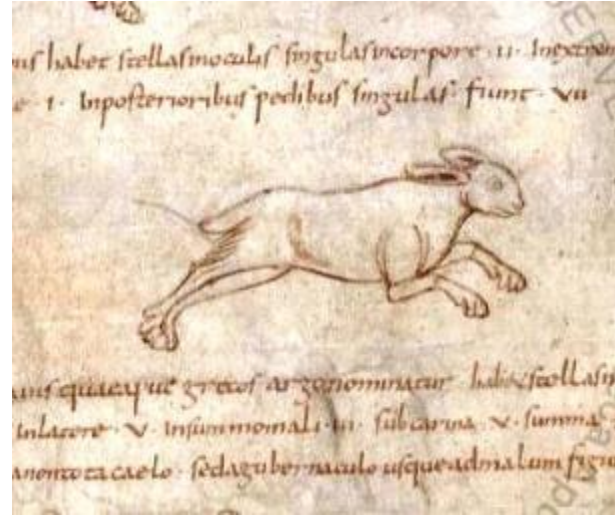 us habet stellas in oculis singulas incorpore · 11 · Inextrem
e · 1 · Inposterioribus pedibus singulas · fiunt · vii
avis quae apud grecos argo nominatur habet stellas in
Inlatere · v · insummomali · iii · subcarina · v · summa
anon tota caelo · sed agubernaculo usque ad malum figu